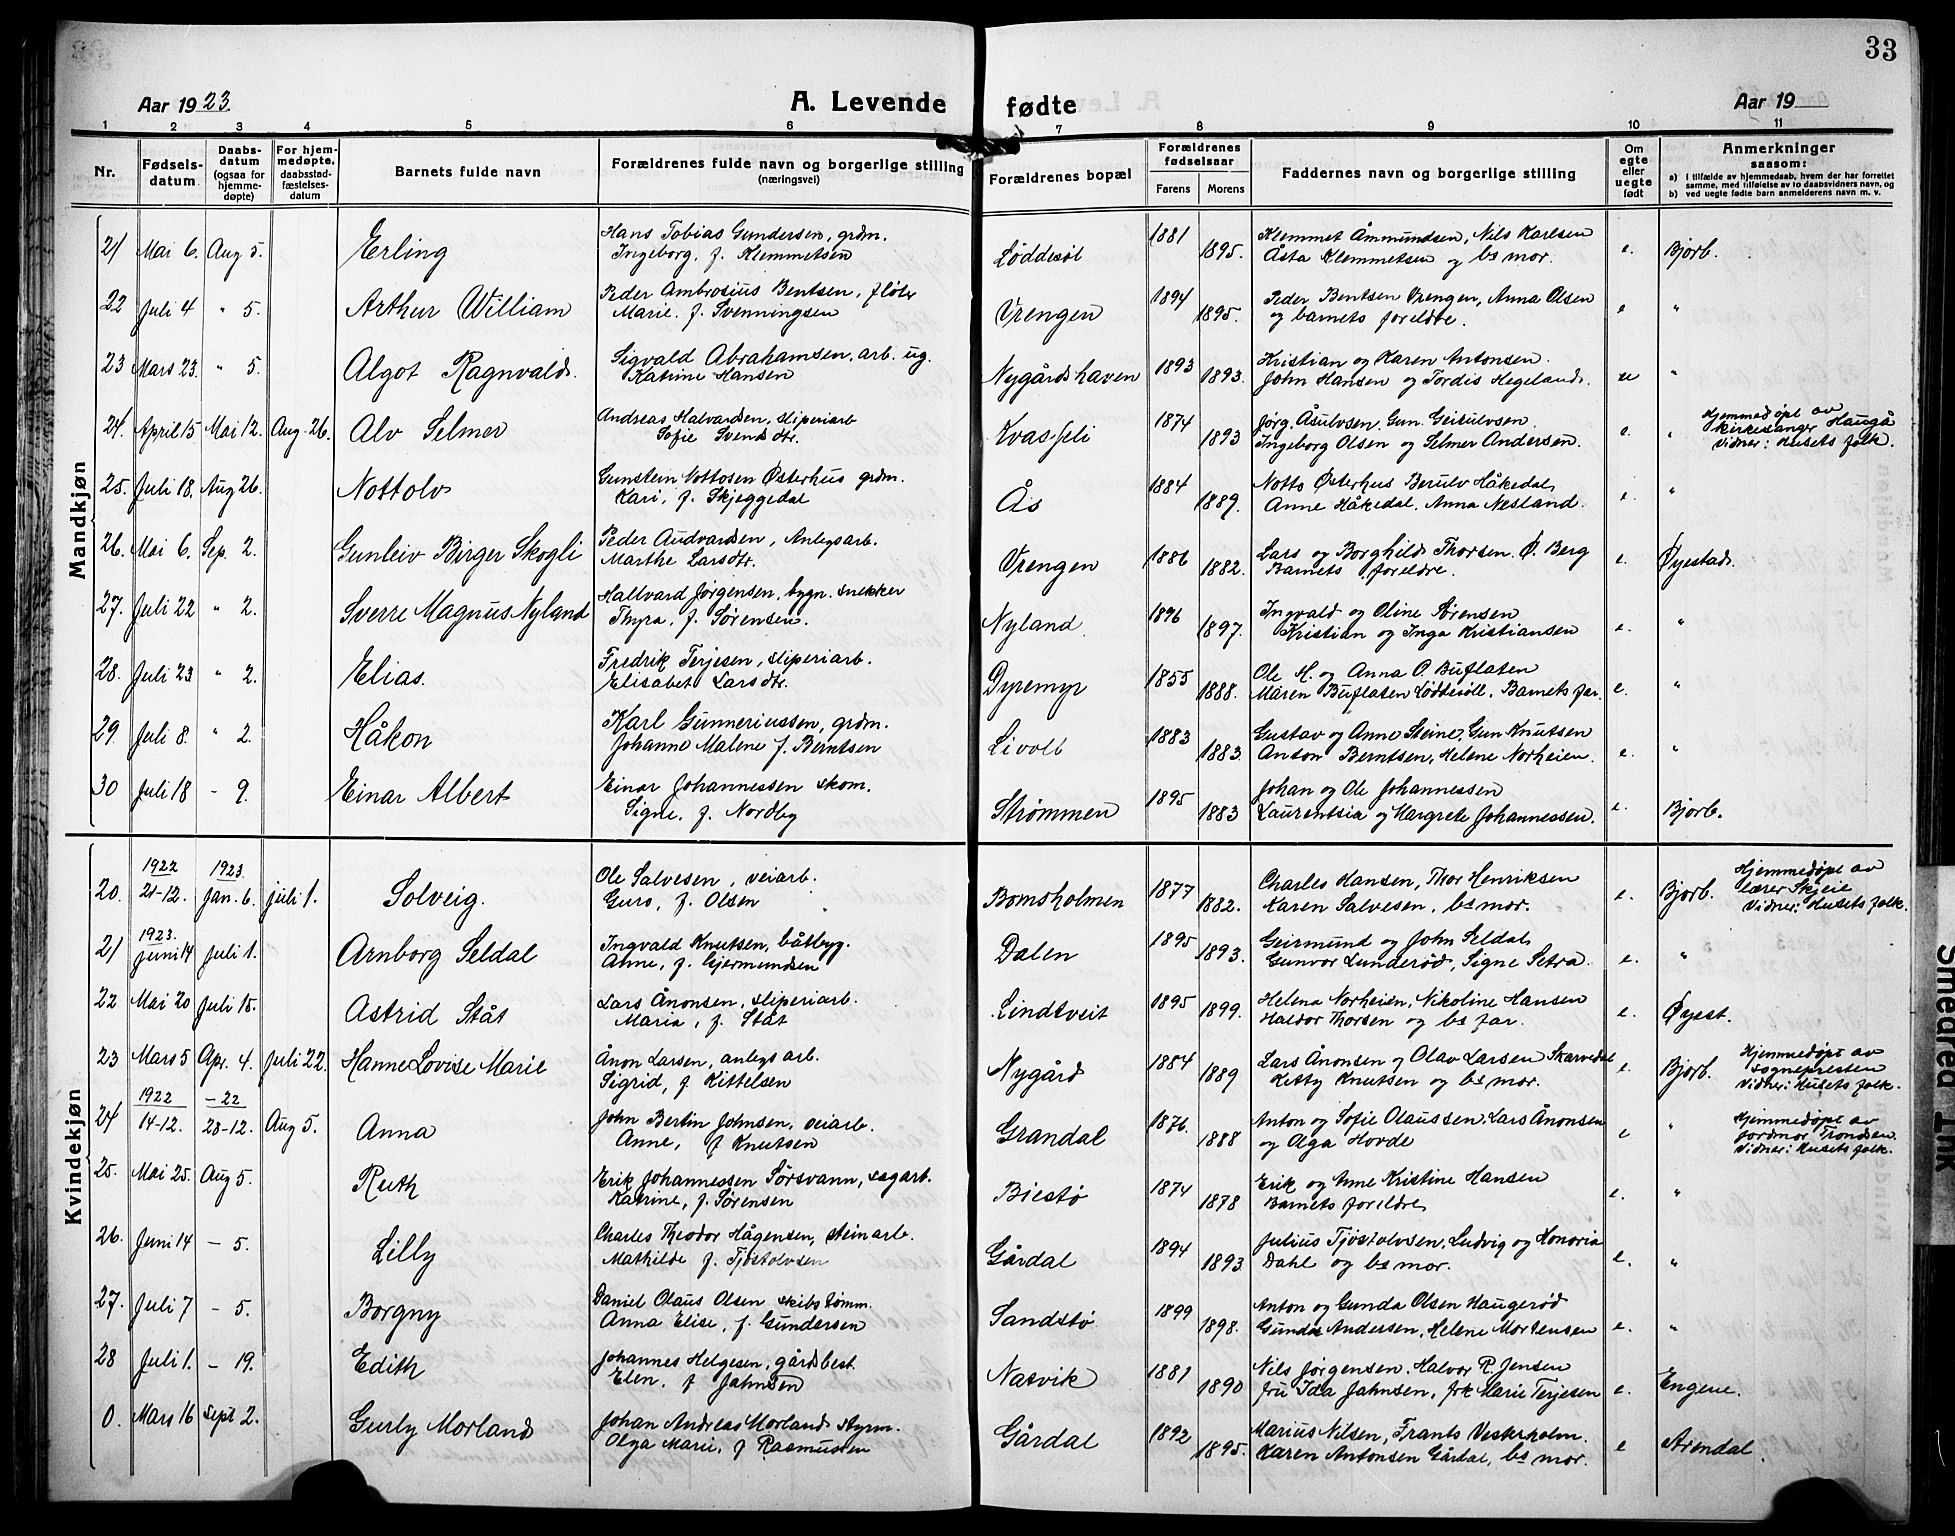 33
Aar 1923.
A. Levende fødte
Aar 19
1 2 3 4 5 6 7 8 9 10 11
Nr.
Fødselsdatum
Daabsdatum (ogsaa for hjemmedøpte)
For hjemmedøpte, daabsstadfæstelsesdatum
Barnets fulde navn
Forældrenes fulde navn og borgerlige stilling (næringsvei)
Forældrenes bopæl
Forældrenes fødselsaar
Farens Morens
Faddernes navn og borgerlige stilling
Om egte eller uegte født
Anmerkninger saasom:
a) I tilfælde av hjemmedaab, hvem der har forrettet samme, med tilføielse av to daabsvidners navn, og
b) ved uegte fødte barn anmelderens navn m. v.
Mandkjøn
21 Mai 6. Aug 5. Erling Hans Tobias Gundersen, grdm. Løddesøl 1881 1895. Klemmet Åmmundsen, Nils Karlsen e. Bjorb.
Ingeborg, f. Klemmetsen Åsta Klemmetsen og bs mor.
22 Juli 4 " 5. Arthur William Peder Ambrosius Bentsen, fløter Vrengen 1894 1895. Peder Bentsen Vrengen, Anna Olsen e "
Marie. f. Svenningsen og barnets foreldre.
23 Mars 23. " 5. Algot Ragnvald. Sigvald Abrahamsen, arb. ug. Nygårdshaven 1893 1893. Kristian og Karen Antonsen. u "
Katrine Hansen John Hansen og Tordis Hegeland.
24. April 15 Mai 12. Aug. 26. Alv Selmer Andreas Halvardsen, sliperiarb Kvasfjeli 1874 1893 Jørg. Åsulvsen. Gun. Geirulvsen. e. " Hjemmedøpt av
Sofie Svendsdtr. Ingeborg Olsen og Selmer Andersen. kirkesanger Haugå
Vidner: Husets folk.
25. Juli 18. Aug 26. Nottolv Gunstein Nottosen Østerhus grdm. Ås 1884 1889. Notto Østerhus Berulv Håkedal e. "
Kari, f. Skjeggedal Anne Håkedal. Anna Nesland.
26. Mai 6. Sep. 2. Gunleiv Birger Skogli Peder Audvardsen, Anlegsarb. Vrengen 1886 1882. Lars og Borghild Thorsen. Ø. Berg e. Øyestad.
Marthe Larsdtr. Barnets foreldre.
27. Juli 22 " 2. Sverre Magnus Nyland Hallvard Jørgensen, bygn. snekker Nyland 1896 1897. Ingvald og Oline Sørensen e. "
Thyra, f. Sørensen. Kristian og Inga Kristiansen
28. Juli 23 " 2. Elias. Fredrik Terjesen, sliperiarb. Dyremyr 1855 1888. Ole H. og Anna O. Buflaten e. "
Elisabet Larsdtr. Maren Buflaten Løddesøl. Barnets far.
29. Juli 8. " 2. Håkon Karl Gunneriussen, grdm. Livoll 1883 1883. Gustav og Anne Steine, Gun Knutsen e. "
Johanne Malene f. Berntsen Anton Berntsen, Helene Norheien.
30 Juli 18 - 9. Einar Albert Einar Johannessen skom. Strømmen 1895 1883 Johan og Ole Johannessen e. Bjorb.
Signe, f. Nordby Laurentsia og Margrete Johannessen.
Kvindekjøn
1922 1923.
20. 21-12. Jan. 6. juli 1. Solveig. Ole Salvesen, veiarb. Bomsholmen 1877 1882. Charles Hansen, Thor Henriksen e. Bjorb. Hjemmedøpt av
Guro, f. Olsen Karen Salvesen, bs mor. lærer Skjeie
Vidner: Husets folk.
1923.
21 juni 14 Juli 1. Arnborg Seldal Ingvald Knutsen, båtbyg. Dalen 1895 1893. Geirmund og John Seldal e. "
Anne, f. Gjermundsen Gunvor Lunderød, Signe Setra.
22 Mai 20 Juli 15. Astrid Ståt Lars Ånonsen, sliperiarb. Lindtveit 1895 1899. Helena Norheien, Nikoline Hansen e. Øyest.
Maria, f. Ståt Haldor Thorsen og bs far.
23 Mars 5 Apr. 4. Juli 22. Hanne Lovise Marie Ånon Larsen, anlegsarb. Nygård 1884 1889 Lars Ånonsen og Olav Larsen Skarvedal e Bjorb. Hjemmedøpt av
Sigrid, f Kittelsen Kitty Knutsen og bs mor. sognepresten
Vidner: Husets folk.
1922 -22
24 14-12. 28-12. Aug 5. Anna John Bertin Johnsen, veiarb. Grandal 1876. 1888 Anton og Sofie Olaussen, Lars Ånonsen e " Hjemmedøpt av
Anne, f Knutsen og Olga Hovde jordmor Trondsen.
Vidner: Husets folk.
25. Mai 25. Aug 5. Ruth Erik Johannessen Sørsvann, sagarb. Biestø 1874 1878 Erik og Anne Kristine Hansen e. "
Katrine, f. Sørensen Barnets foreldre
26. Juni 14 - 5. Lilly Charles Theodor Hågensen, steinarb. Gårdal 1894 1893. Julius Tjøstolvsen, Ludvig og Honoria e. "
Mathilde f. Tjøstolvsen Dahl og bs mor.
27. Juli 7 - 5. Borgny Daniel Olaus Olsen skibstømm. Sandstø 1899 1898. Anton og Gunda Olsen Haugerød e. "
Anna Elise, f. Gundersen Gunda Andersen, Helene Mortensen
28 Juli 1. - 19. Edith Johannes Helgesen, gårdbest. Nasvik 1881 1890 Nils Jørgensen. Halvor R. Jensen e. Engene.
Elen, f Jahnsen fru Ida Jahnsen, frk Marie Terjesen
0. Mars 16 Sept 2. Gurly Morland Johan Andreas Morland styrm. Gårdal 1892 1895. Marius Nilsen, Frants Vesterholm. e Arendal.
Olga Marie, f Rasmussen Karen Antonsen Gårdal, bs mor.
Smeared Ink